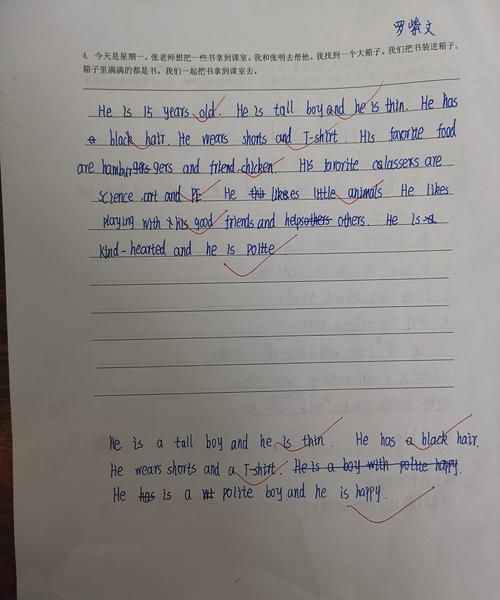 罗紫文
4. 今天是星期一。张老师想把一些书拿到课室。我和张明去帮他。我找到一个大箱子。我们把书装进箱子。
箱子里满满的都是书。我们一起把书拿到课室去。
He is 15 years old. He is tall boy and he is thin. He has
a black hair. He wears shorts and T-shirt. His favorite food
are hamburgers gers and friend chicken. His favorite calassers are
science .art and PE He likes little animals He likes
playing with his good friends and helpsothers others. He is a
kind-hearted and he is polite
He is a tall boy and he is thin. He has a black hair.
He wears shorts and a T-shirt. He is a boy with polite happy.
He has is a polite boy and he is happy.